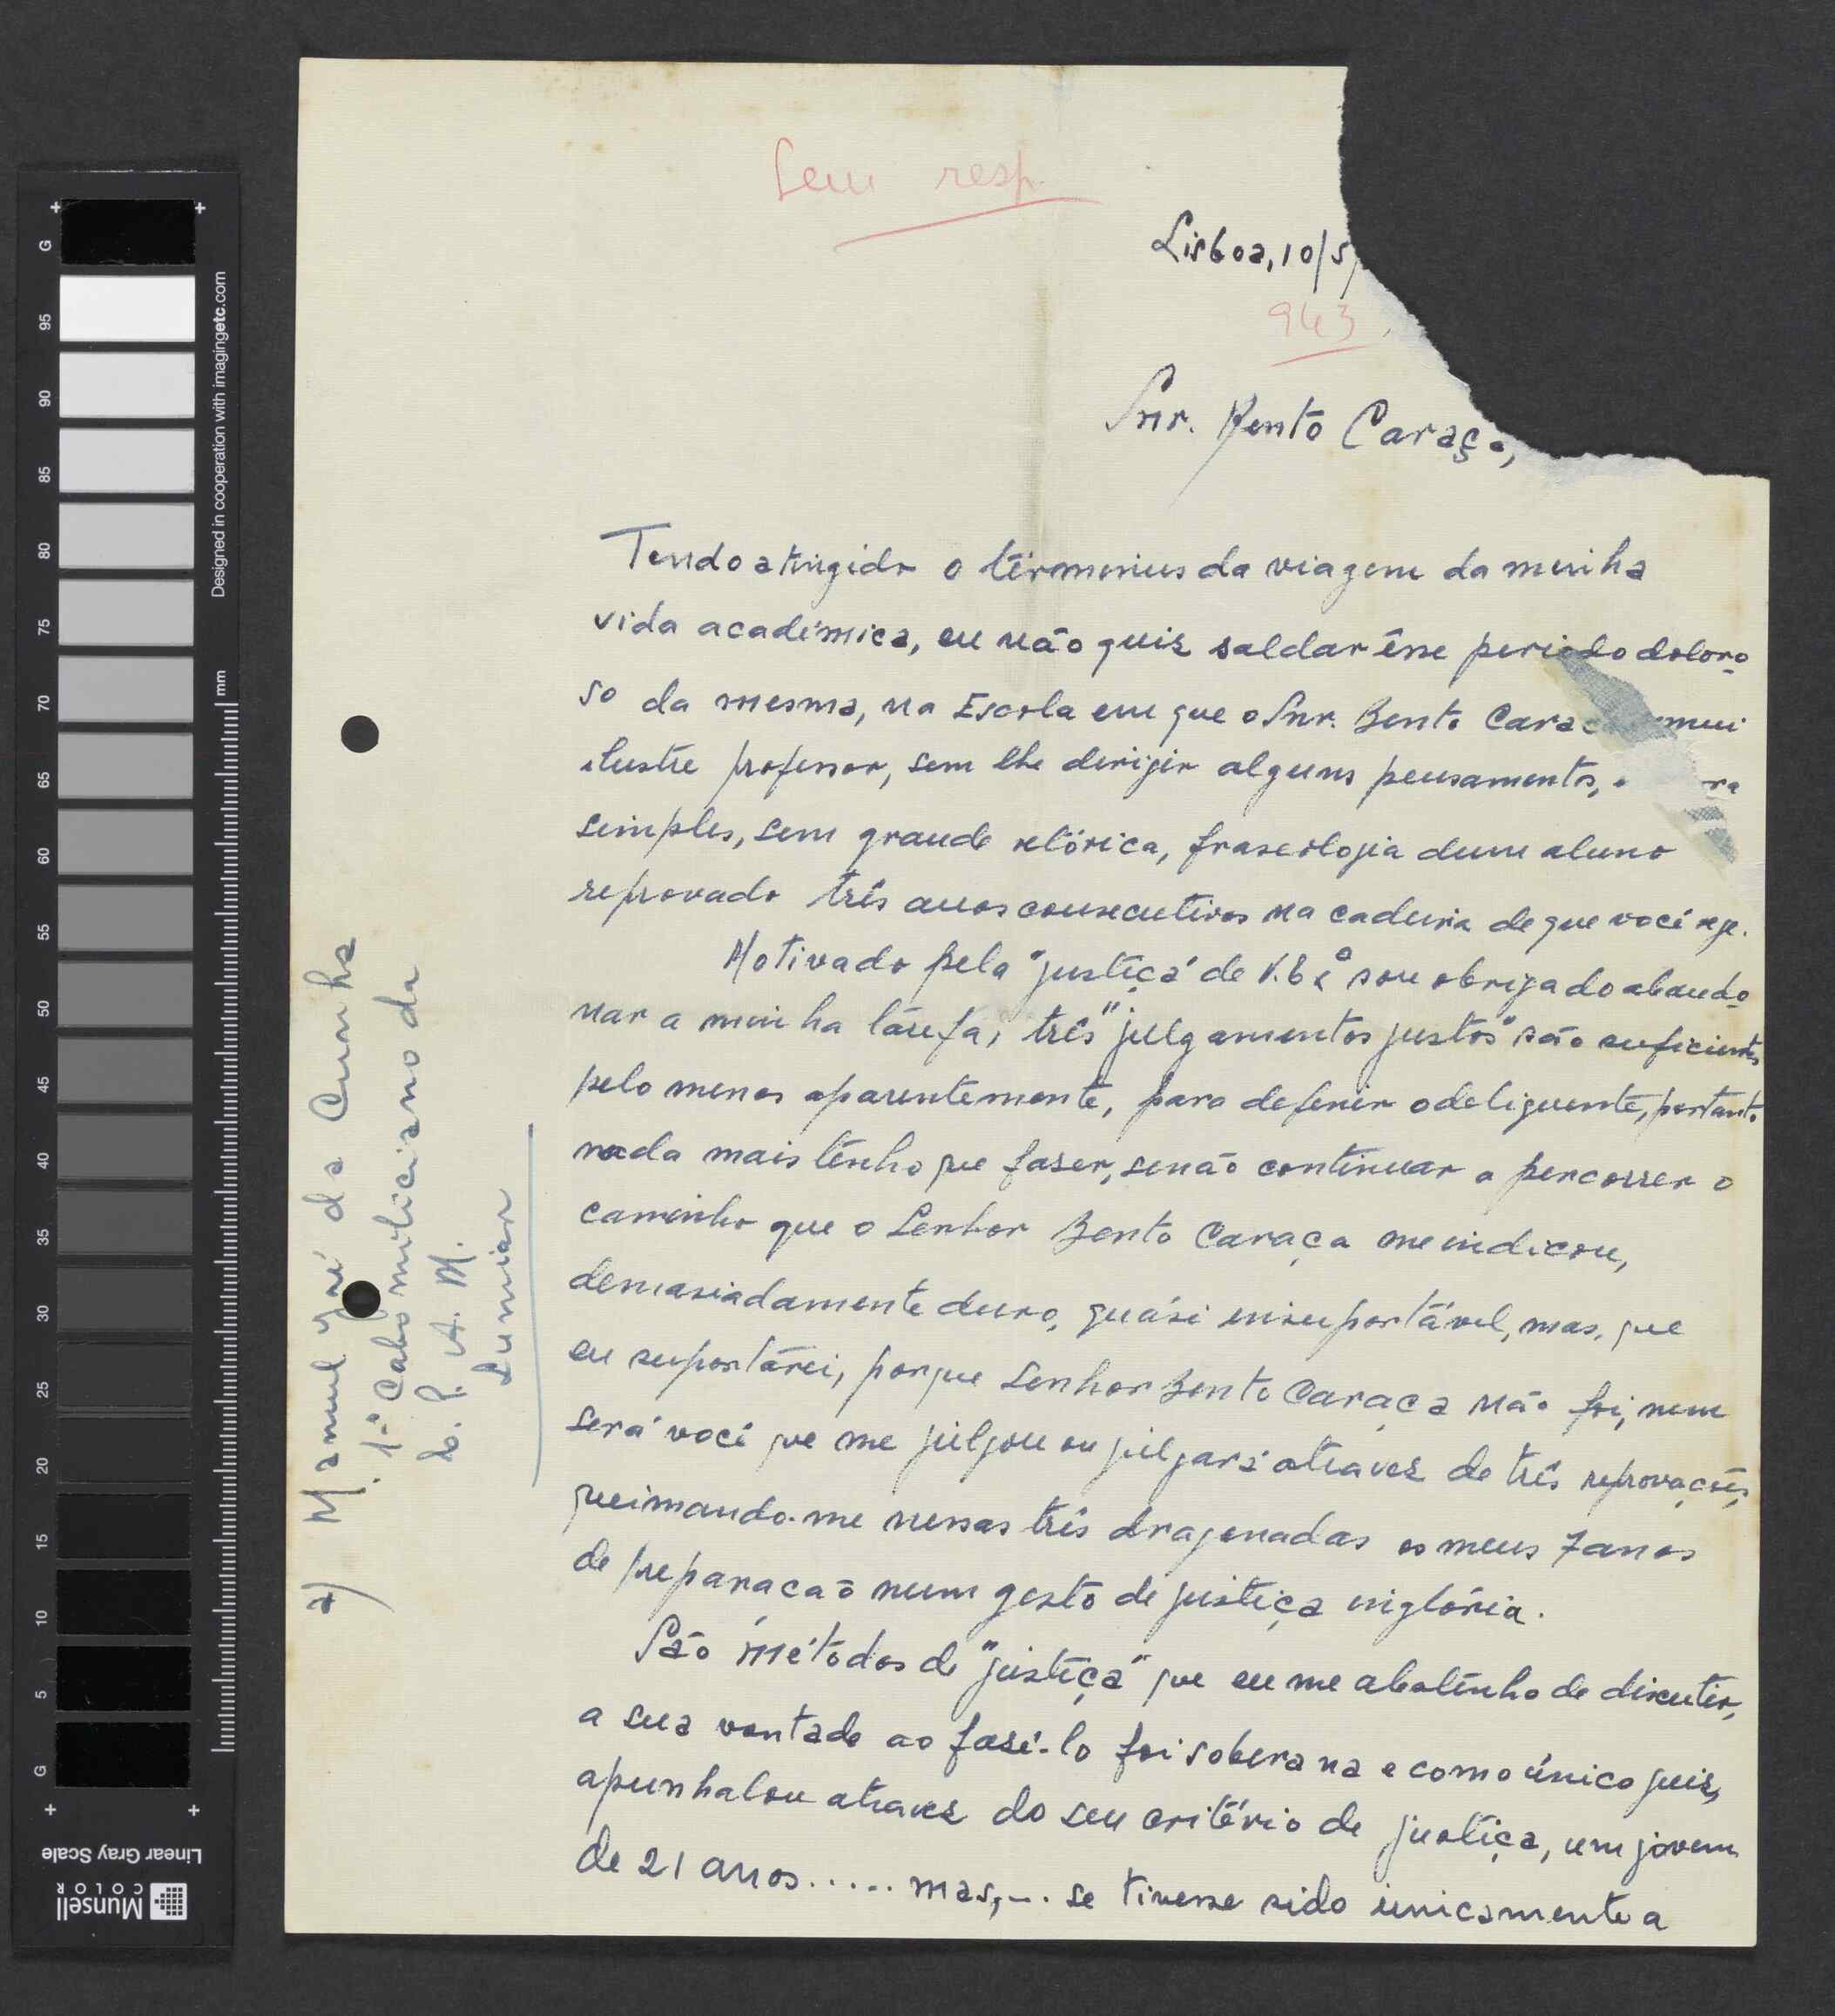 Sem resp.
Lisboa, 10/5/
943
Snr. Bento Caraça,
Tendo atingido o términus da viagem da minha
vida académica, eu não quiz saldar êsse periodo doloro
so da mesma, na Escola em que o Snr. Bento Caraç mui
ilustre professor, sem lhe dirigir alguns pensamentos,
simples, sem grande retórica, fraseologia dum aluno
reprovado três anos consecutivos na cadeira de que você rege.
Motivado pela "justiça" de V. Exª sou obrigado abando
nar a minha tárefa, três "julgamentos justos" são suficientes
pelo menos aparentemente, para defenir o deliquente, portanto
nada mais tenho que faser, senão continuar a percorrer o
caminho que o Senhor Bento Caraça me indicou,
demasiadamente duro, quási insuportável, mas, que
eu suportárei, porque Senhor Bento Caraça não foi, nem
será você que me julgou ou julgará atravez de três reprovações,
queimando-me nessas três dragonadas os meus 7 anos
de preparacaõ num gesto de justiça inglória.
São métodos de "justiça" que eu me abstenho de discutir,
a sua vontade ao fasê-lo foi soberana e como único juiz,
apunhalou atravez do seu critério de justiça, um jovem
de 21 anos..... mas,... se tivesse sido unicamente a
a) Manuel José da Cunha
1.º Cabo miliciano da
E. P. A. M.
Lumiar
Designed in cooperation with imagingetc.com
mm
G
95
90
85
80
75
70
65
60
55
50
45
40
35
30
25
20
15
10
5
G
Linear Gray Scale
Munsell
COLOR